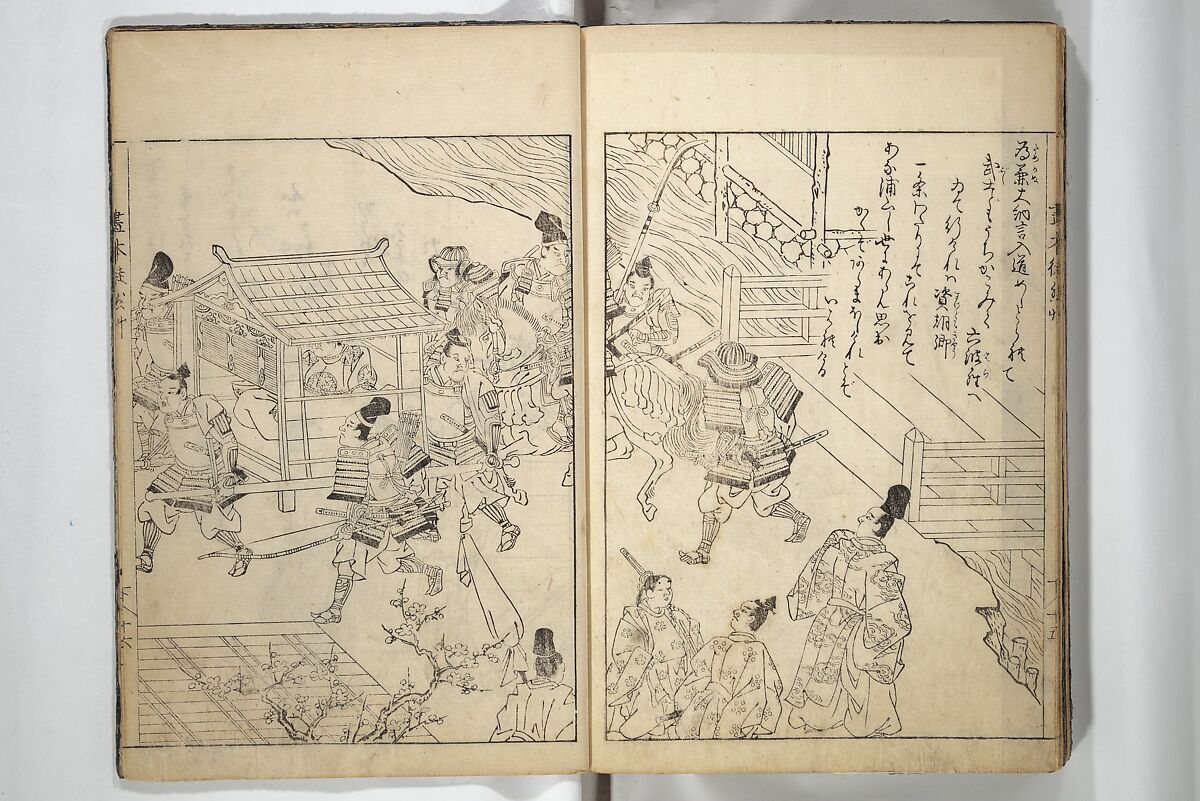 為兼大納言入道めしとられて
武士どもうちかこみて六波羅へ
ゐて行けれは資朝卿
一条わたりにてこれを見て
あな浦山し世にあらん思出
かくこそあらまほしけれとぞ
いはれける
畫本徒然草
畫本徒然草